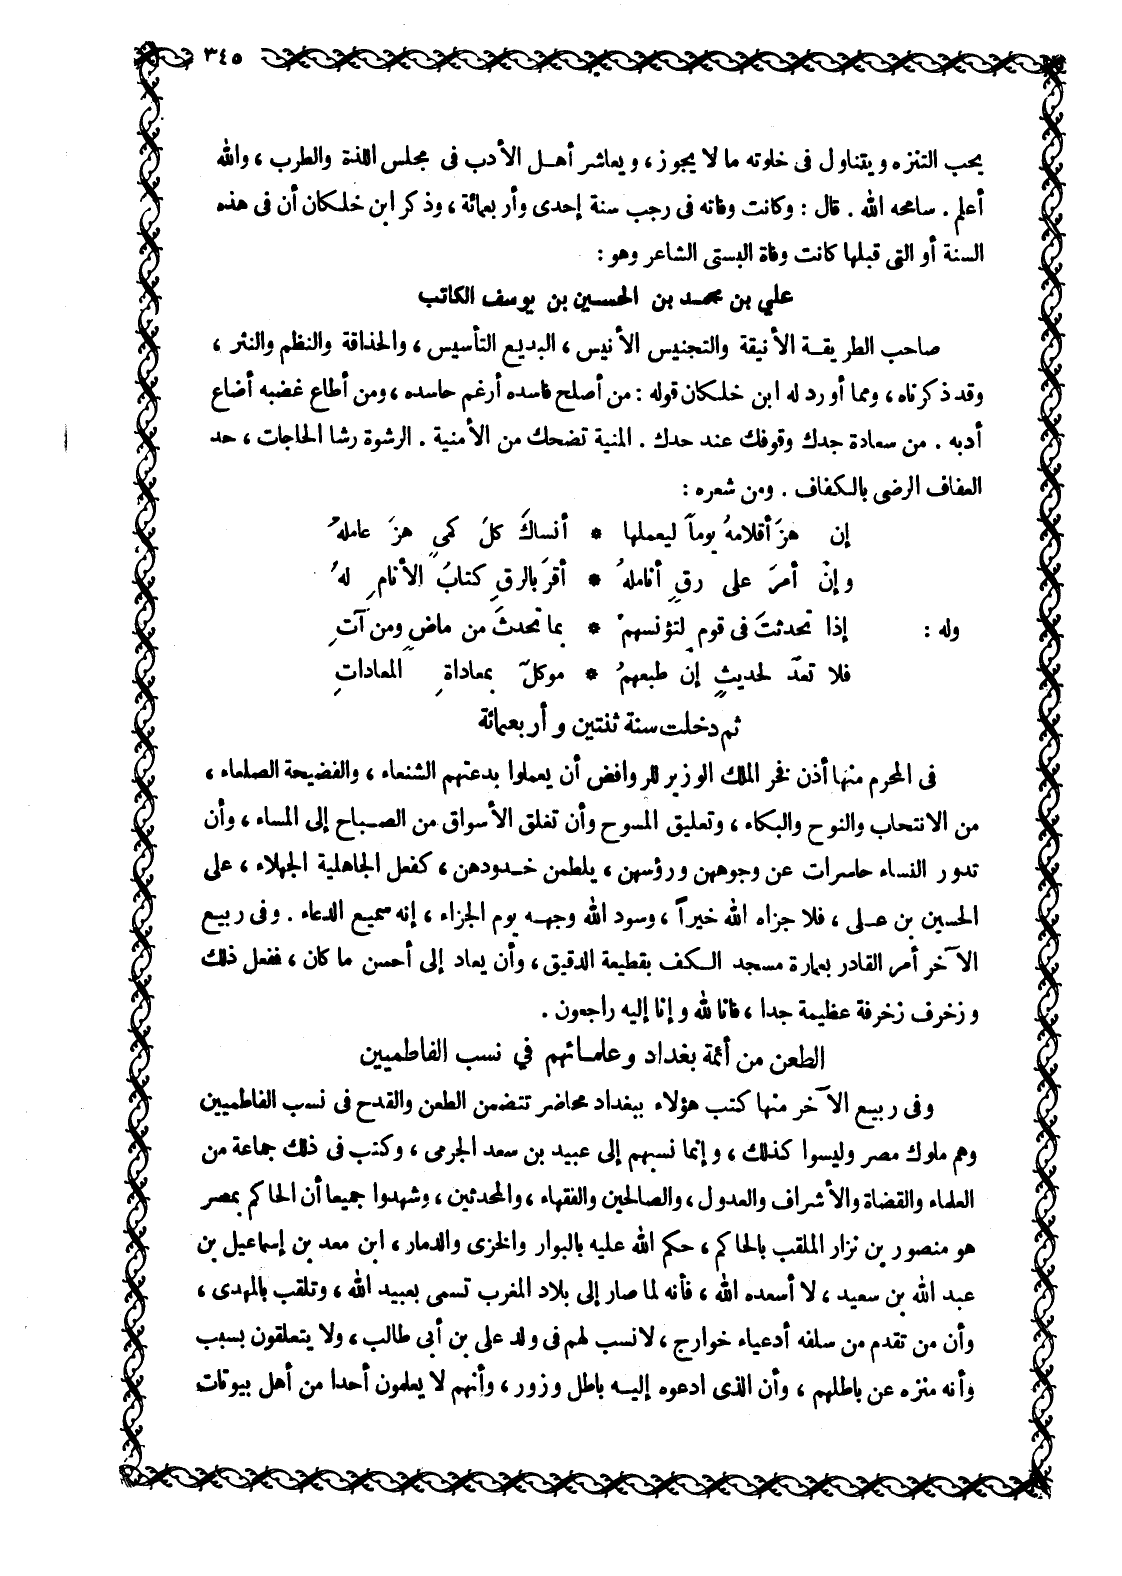 ٣٤٥
يحب التنزه ويتناول فى خلوته ما لا يجوز، ويعاشر أهل الأدب فى مجلس اللذة والطرب، والله
أعلم. سامحه الله. قال: وكانت وفاته فى رجب سنة إحدى وأربعمائة، وذكر ابن خلكان أن فى هذه
السنة أو التى قبلها كانت وفاة البستى الشاعر وهو:
علي بن محمد بن الحسين بن يوسف الكاتب
صاحب الطريقة الأنيقة والتجنيس الأنيس، البديع التأسيس، والحذاقة والنظم والنثر،
وقد ذكرناه، ومما أورد له ابن خلكان قوله: من أصلح فاسده أرغم حاسده، ومن أطاع غضبه أضاع
أدبه. من سعادة جدك وقوفك عند حدك. المنية تضحك من الأمنية. الرشوة رشا الحاجات، حد
العفاف الرضى بالكفاف. ومن شعره:
إن هزَ أقلامهُ يوماً ليعملها * أنساكَ كلَ كمىٍ هزَ عاملهُ
وإنْ أمرَ على رقٍ أناملهُ * أقرَ بالرقِ كتابُ الأنامِ لهُ
وله: إذا تحدثتَ فى قومٍ لتؤنسهمْ * بما تحدثَ من ماضٍ ومن آتِ
فلا تعدّ لحديثٍ إن طبعهمُ * موكلٌ بمعاداةِ المعاداتِ
ثم دخلت سنة ثنتين وأربعمائة
فى المحرم منها أذن فخر الملك الوزير للروافض أن يعملوا بدعتهم الشنعاء، والفضيحة الصلعاء،
من الانتحاب والنوح والبكاء، وتعليق المسوح وأن تغلق الأسواق من الصباح إلى المساء، وأن
تدور النساء حاسرات عن وجوههن ورؤسهن، يلطمن خدودهن، كفعل الجاهلية الجهلاء، على
الحسين بن على، فلا جزاه الله خيراً، وسود الله وجهه يوم الجزاء، إنه سميع الدعاء. وفى ربيع
الآخر أمر القادر بعمارة مسجد الكف بقطيعة الدقيق، وأن يعاد إلى أحسن ما كان، ففعل ذلك
وزخرف زخرفة عظيمة جدا، فانا لله وإنا إليه راجعون.
الطعن من أئمة بغداد وعلمائهم في نسب الفاطميين
وفى ربيع الآخر منها كتب هؤلاء ببغداد محاضر تتضمن الطعن والقدح فى نسب الفاطميين
وهم ملوك مصر وليسوا كذلك، وإنما نسبهم إلى عبيد بن سعد الجرمى، وكتب فى ذلك جماعة من
العلماء والقضاة والأشراف والعدول، والصالحين والفقهاء، والمحدثين، وشهدوا جميعا أن الحاكم بمصر
هو منصور بن نزار الملقب بالحاكم، حكم الله عليه بالبوار والخزى والدمار، ابن معد بن إسماعيل بن
عبد الله بن سعيد، لا أسعده الله، فأنه لما صار إلى بلاد المغرب تسمى بعبيد الله، وتلقب بالمهدى،
وأن من تقدم من سلفه أدعياء خوارج، لا نسب لهم فى ولد على بن أبى طالب، ولا يتعلقون بسبب
وأنه منزه عن باطلهم، وأن الذى ادعوه إليه باطل وزور، وأنهم لا يعلمون أحدا من أهل بيوتات